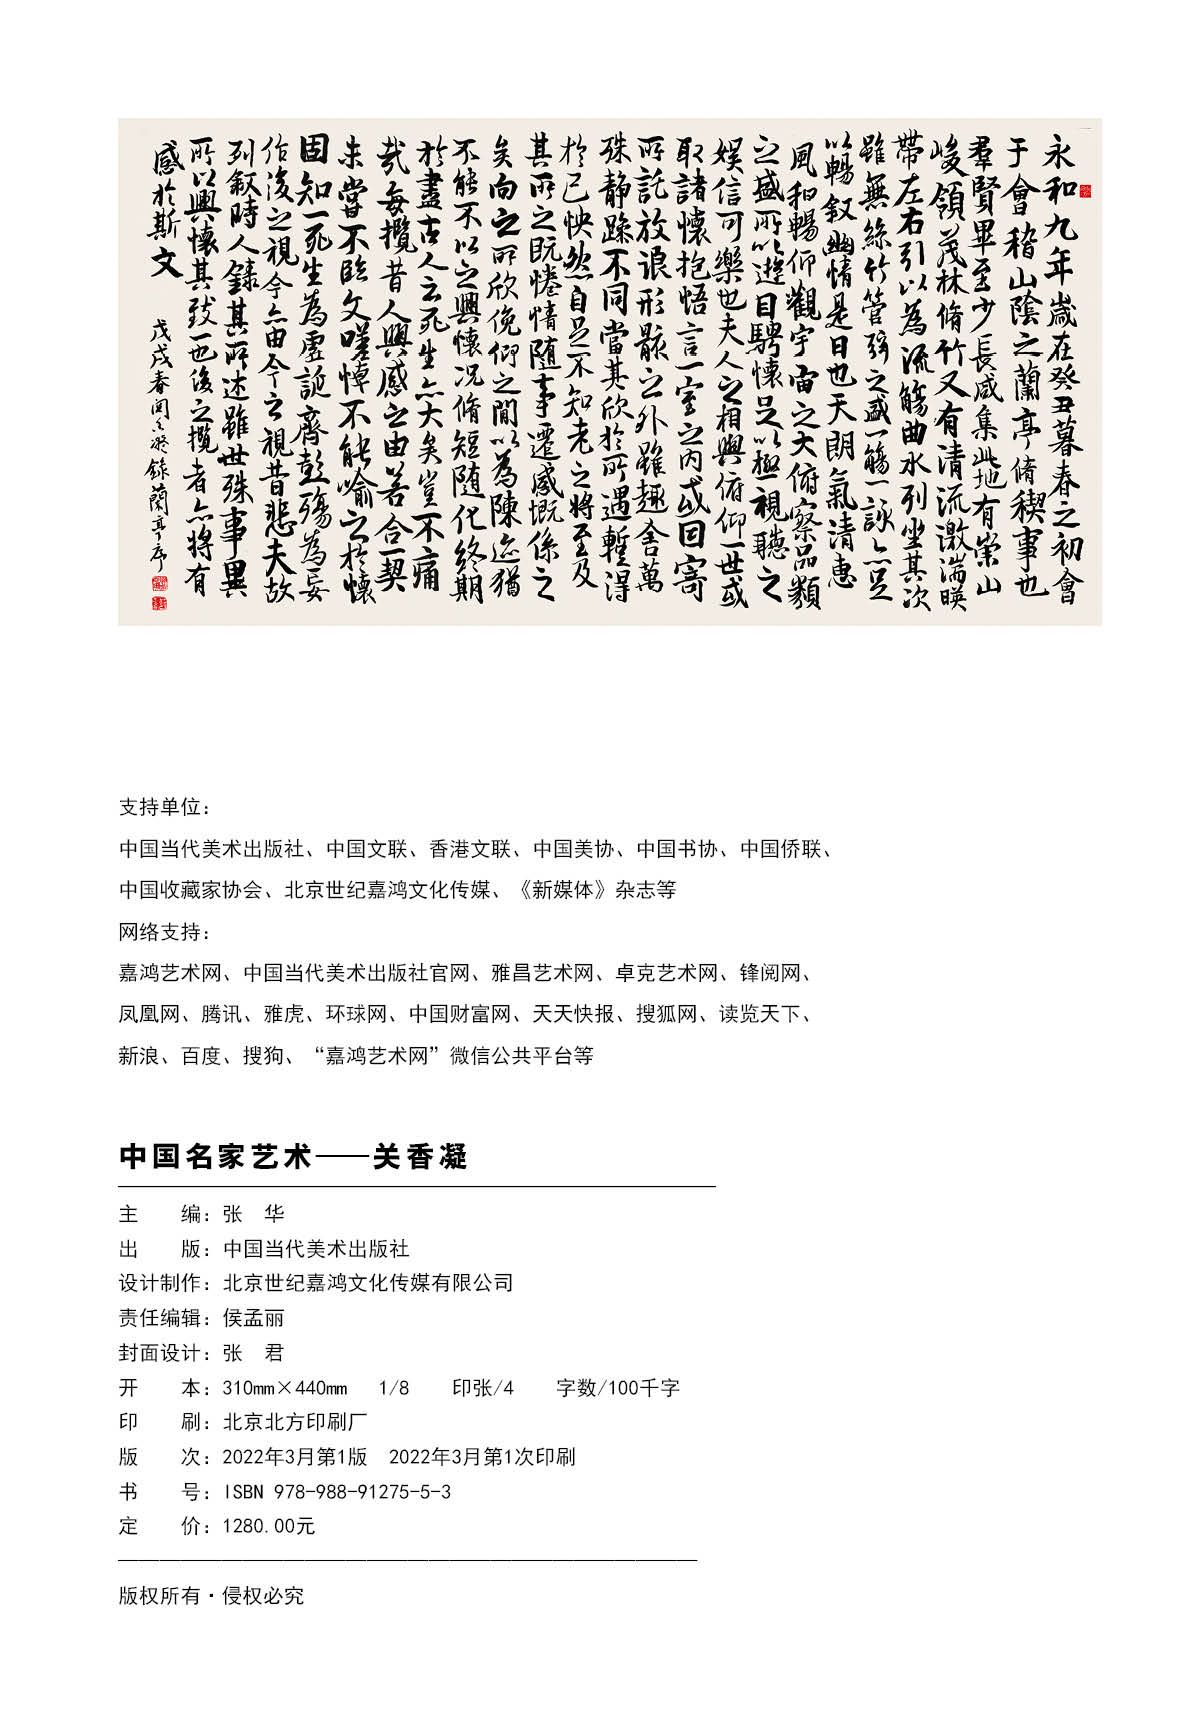 永和九年歲在癸丑暮春之初會
于會稽山陰之蘭亭脩稧事也
羣賢畢至少長咸集此地有崇山
峻領茂林脩竹又有清流激湍暎
帶左右引以為流觴曲水列坐其次
雖無絲竹管弦之盛一觴一詠亦足
以暢叙幽情是日也天朗氣清惠
風和暢仰觀宇宙之大俯察品類
之盛所以遊目騁懷足以極視聽之
娛信可樂也夫人之相與俯仰一世或
取諸懷抱悟言一室之内或因寄
所託放浪形骸之外雖趣舍萬
殊静躁不同當其欣於所遇蹔得
於己怏然自足不知老之將至及
其所之既惓情隨事遷感慨係之
矣向之所欣俛仰之間以為陳迹猶
不能不以之興懷況脩短隨化終期
於盡古人云死生亦大矣豈不痛
哉每攬昔人興感之由若合一契
未嘗不臨文嗟悼不能喻之於懷
固知一死生為虛誕齊彭殤為妄
作後之視今亦由今之視昔悲夫故
列叙時人錄其所述雖世殊事異
所以興懷其致一也後之攬者亦將有
感於斯文
戊戌春関香凝錄蘭亭序
支持单位：
中国当代美术出版社、中国文联、香港文联、中国美协、中国书协、中国侨联、
中国收藏家协会、北京世纪嘉鸿文化传媒、《新媒体》杂志等
网络支持：
嘉鸿艺术网、中国当代美术出版社官网、雅昌艺术网、卓克艺术网、锋阅网、
凤凰网、腾讯、雅虎、环球网、中国财富网、天天快报、搜狐网、读览天下、
新浪、百度、搜狗、“嘉鸿艺术网”微信公共平台等
中国名家艺术——关香凝
主　　编：张　华
出　　版：中国当代美术出版社
设计制作：北京世纪嘉鸿文化传媒有限公司
责任编辑：侯孟丽
封面设计：张　君
开　　本：310mm×440mm　1/8　　印张/4　　字数/100千字
印　　刷：北京北方印刷厂
版　　次：2022年3月第1版　2022年3月第1次印刷
书　　号：ISBN 978-988-91275-5-3
定　　价：1280.00元
版权所有·侵权必究